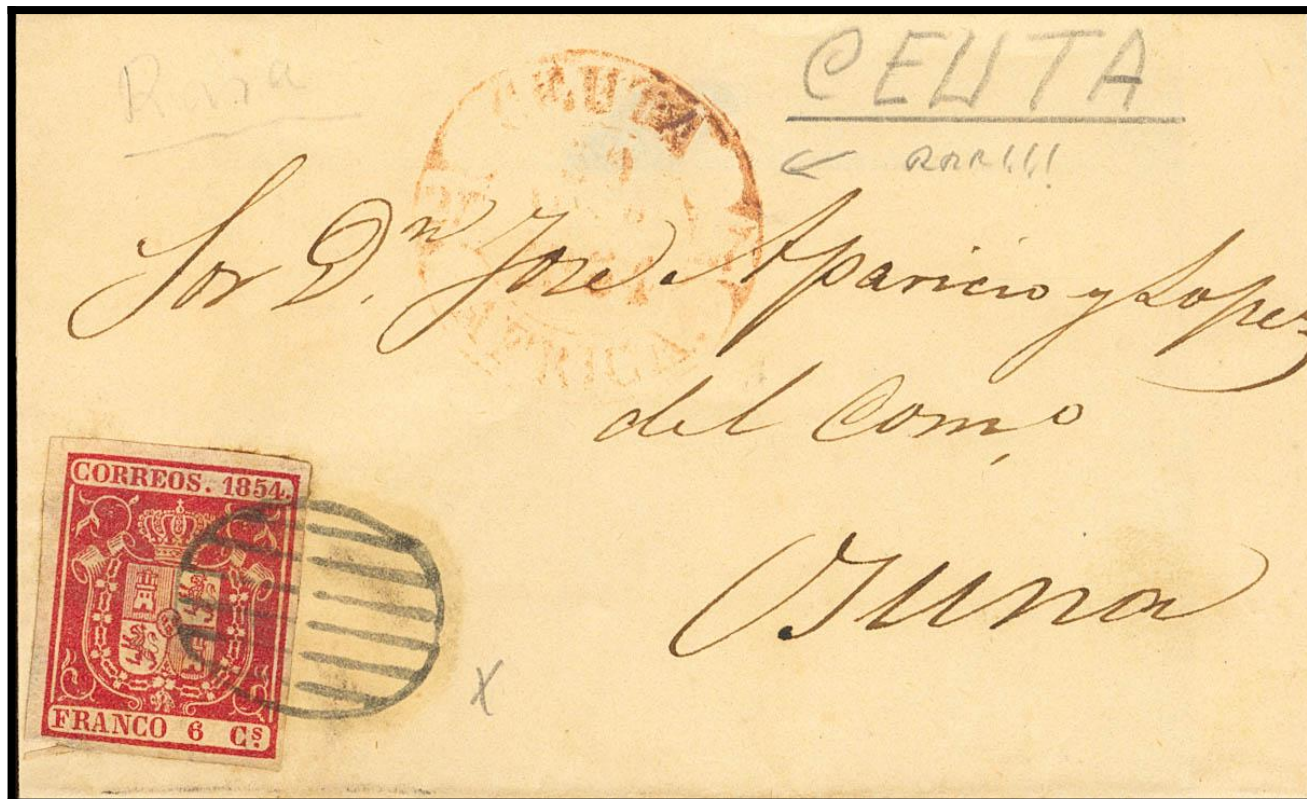 CEUTA
RRR!!!
CEUTA
AFRICA.
Sor Dn. Jose Aparicio y Lopez
del Com.o
Osuna
CORREOS. 1854.
FRANCO 6 Cs.
X